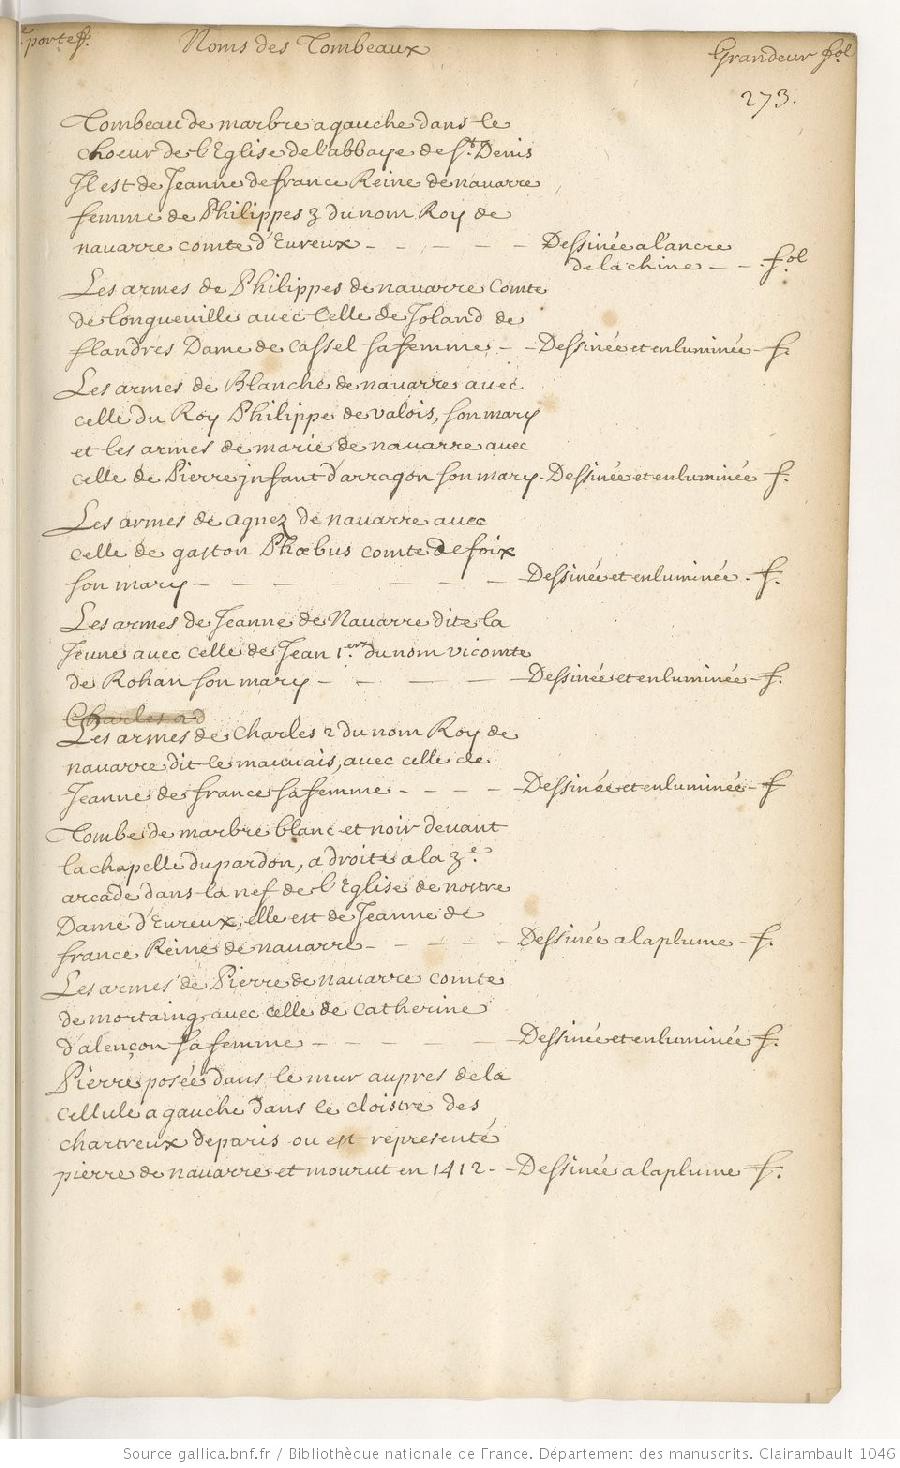 portef. Noms des Tombeaux Grandeur fol
273.
Tombeau de marbre a gauche dans le
Choeur de l'Eglise de l'abbaye de St. Denis
Il est de Jeanne de france Reine de navarre
femme de Philippes 3 du nom Roy de
navarre comte d'Evreux - - - - - Dessinée a l'ancre
de la chine - - fol
Les armes de Philippes de navarre Comte
de longueville avec Celle de Joland de
flandres Dame de Cassel sa femme - - Dessinée et enluminée - f.
Les armes de Blanche de navarre avec
celle du Roy Philippe de valois, son mary
et les armes de marie de navarre avec
celle de Pierre jnfant d'arragon son mary - Dessinée et enluminée f.
Les armes de agnez de navarre avec
celle de gaston Phœbus comte de foix
son mary - - - - - - - Dessinée et enluminée . f.
Les armes de Jeanne de Navarre dite la
Jeune avec celle de Jean 1.er du nom vicomte
de Rohan son mary - - - - - Dessinée et enluminée - f.
Charles ad
Les armes de Charles 2 du nom Roy de
navarre dit le mauvais, avec celle de
Jeanne de france sa femme - - - - Dessinée et enluminée - f
Tombe de marbre blanc et noir devant
la chapelle du pardon, a droite a la 3.e
arcade dans la nef de l'Eglise de nostre
Dame d'Evreux, elle est de Jeanne de
france Reine de navarre - - - - - Dessinée a la plume - f.
Les armes de Pierre de navarre comte
de mortaing avec celle de Catherine
d'alençon sa femme - - - - - Dessinée et enluminée f.
Pierre posée dans le mur aupres de la
cellule a gauche dans le cloistre des
chartreux de paris ou est representé
pierre de navarre et mourut en 1412 - - Dessinée a la plume f.
Source gallica.bnf.fr / Bibliothèque nationale de France. Département des manuscrits. Clairambault 1046